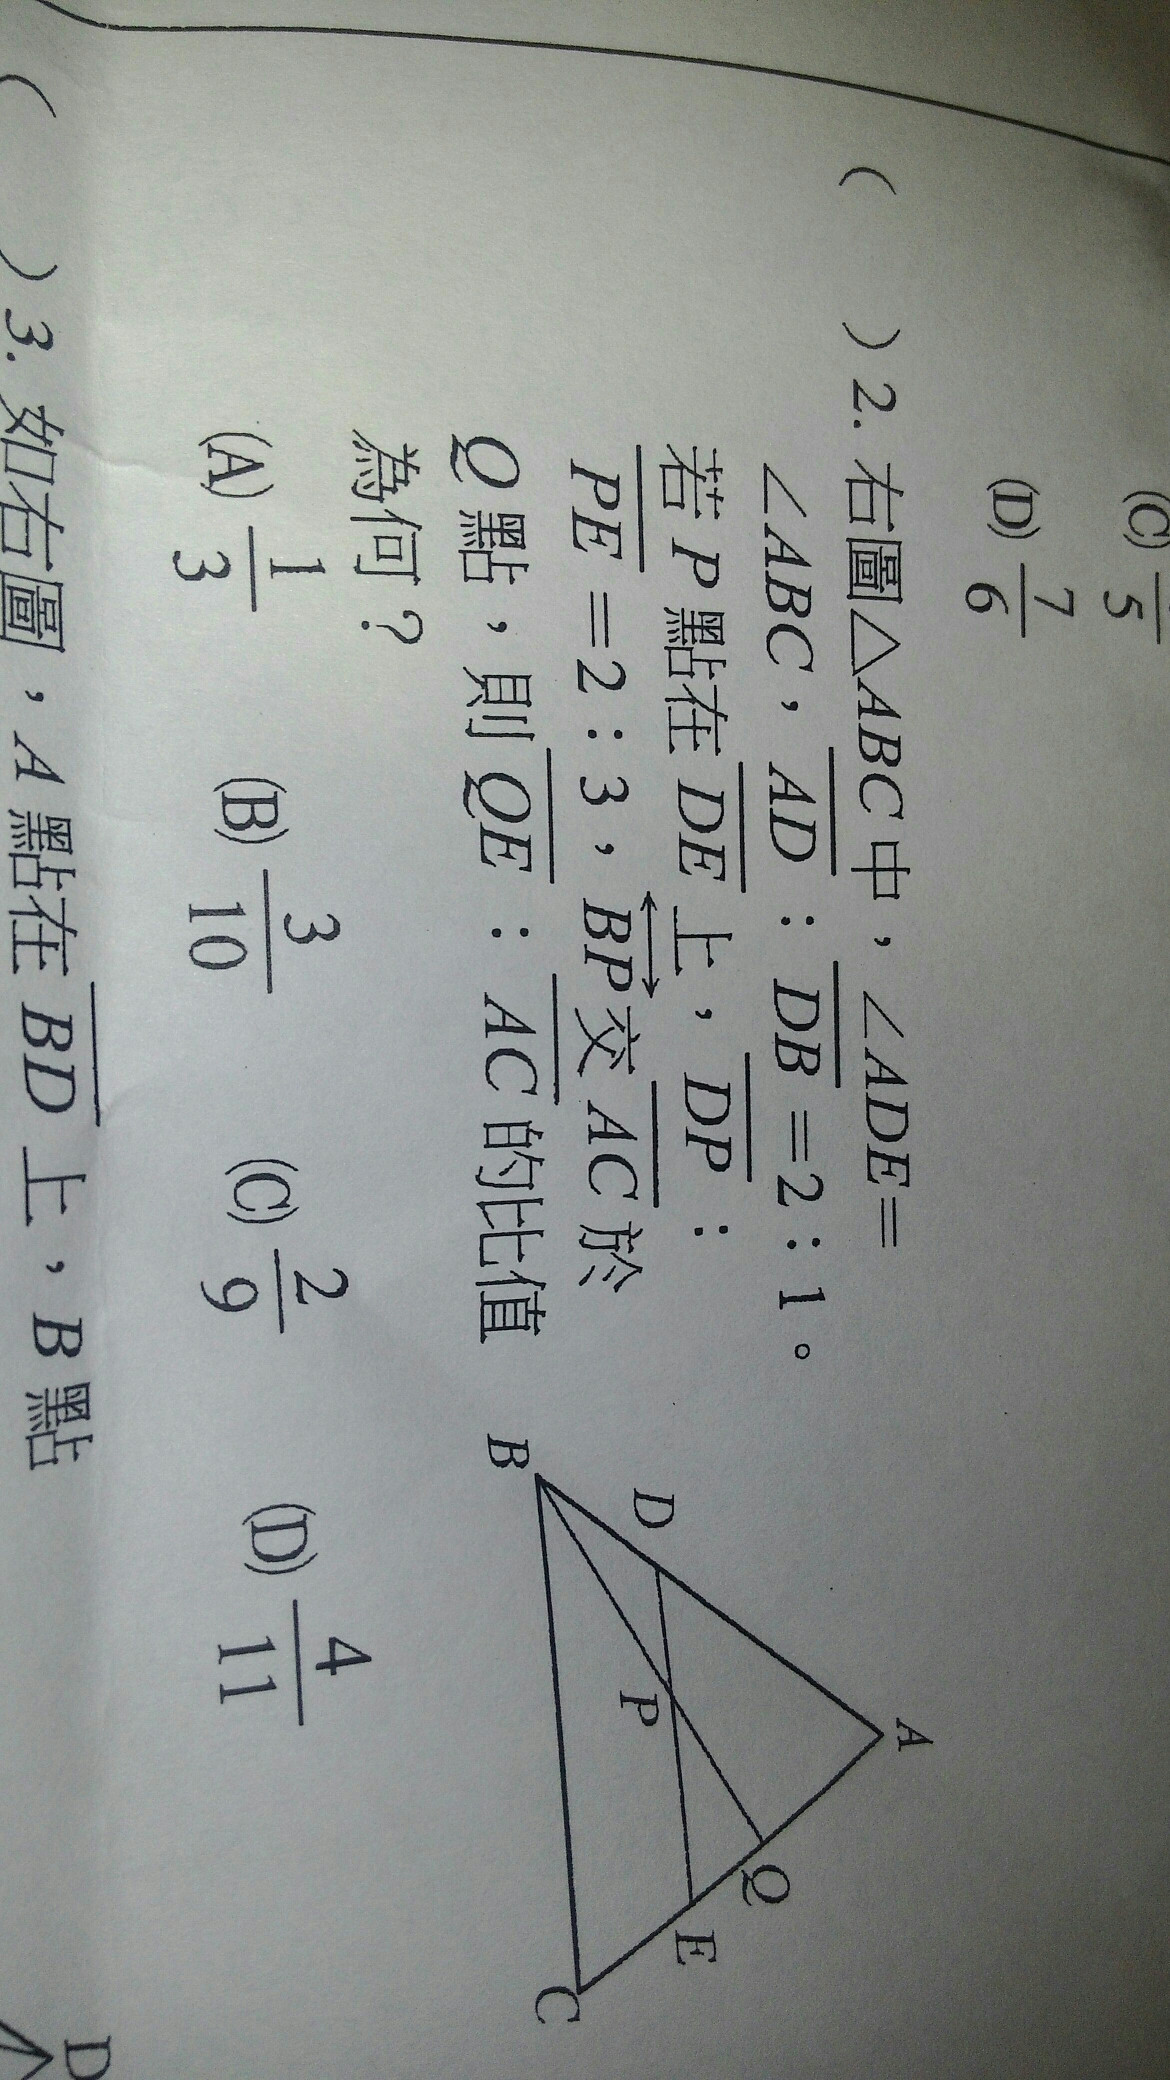 (C) 5
(D) 7/6
( )2. 右圖△ABC中，∠ADE=
∠ABC，AD：DB=2：1。
若P點在DE上，DP：
PE=2：3，BP交AC於
Q點，則QE：AC的比值
為何？
(A) 1/3 (B) 3/10 (C) 2/9 (D) 4/11
A
B
C
D
E
P
Q
( )3. 如右圖，A點在BD上，B點
D